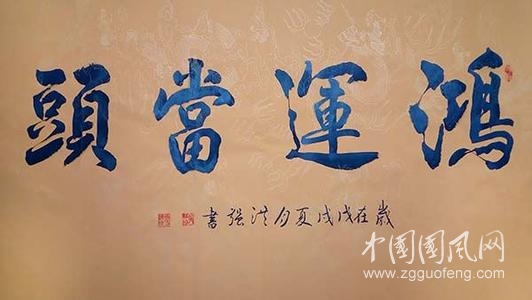 鴻運當頭
歲在戊戌夏月洪强書
中國國风网
www.zgguofeng.com